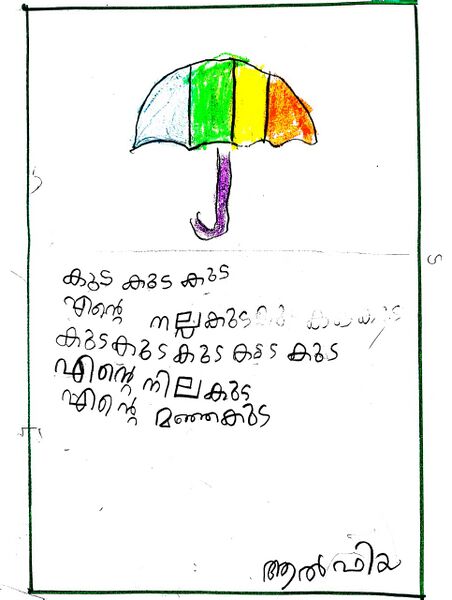 കുട കുട കുട
എന്റെ നല്ലകുട
കുടകുട കുട കുട കുട
എന്റെ നിലകുട
എന്റെ മഞ്ഞകുട
ആൽഫിയ